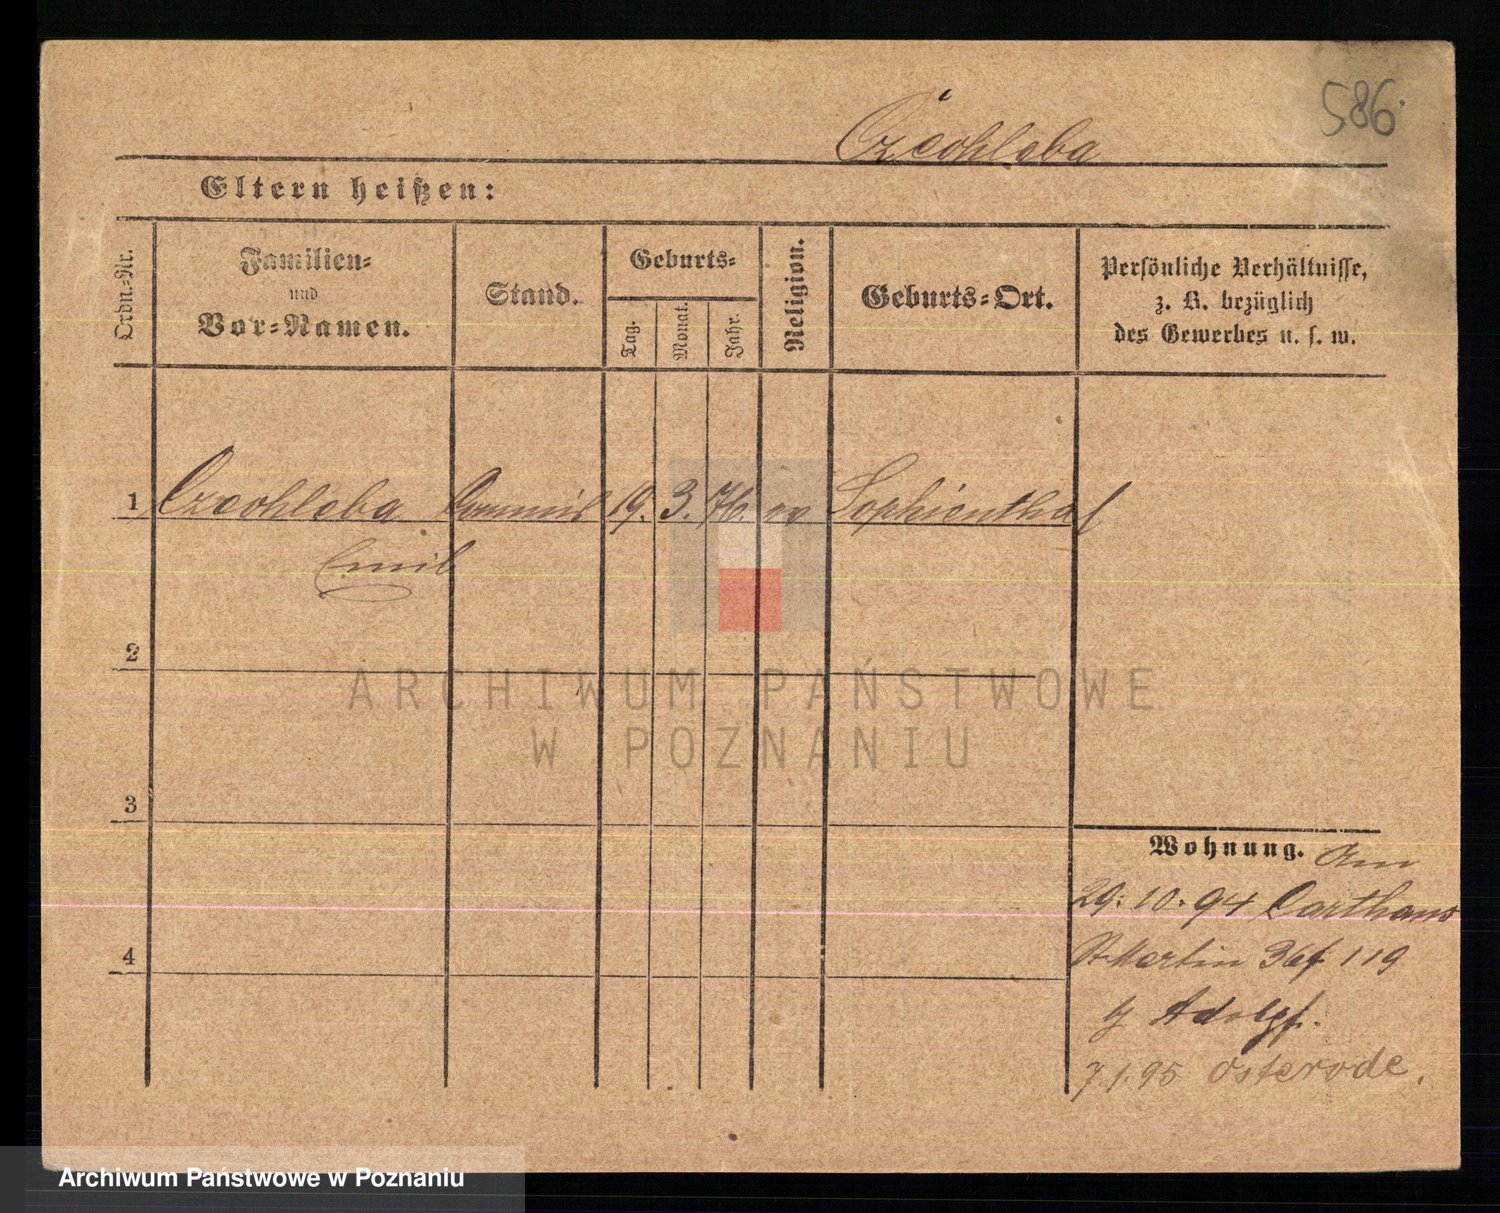 586.
Czcohleba
Eltern heißen:
Ordn.-Nr.
Familien-
und
Vor-Namen.
Stand.
Geburts-
Tag.
Monat.
Jahr.
Religion.
Geburts-Ort.
Persönliche Verhältnisse,
z. B. bezüglich
des Gewerbes u. s. w.
1 Czcohleba Commis 19. 3. 76. ev Sophienthal
Emil
2
ARCHIWUM PAŃSTWOWE
W POZNANIU
3
Wohnung. Am
29.10.94 Carthaus
St Martin 36 f 119
Adolf.
7 1.95 Osterode.
4
Archiwum Państwowe w Poznaniu